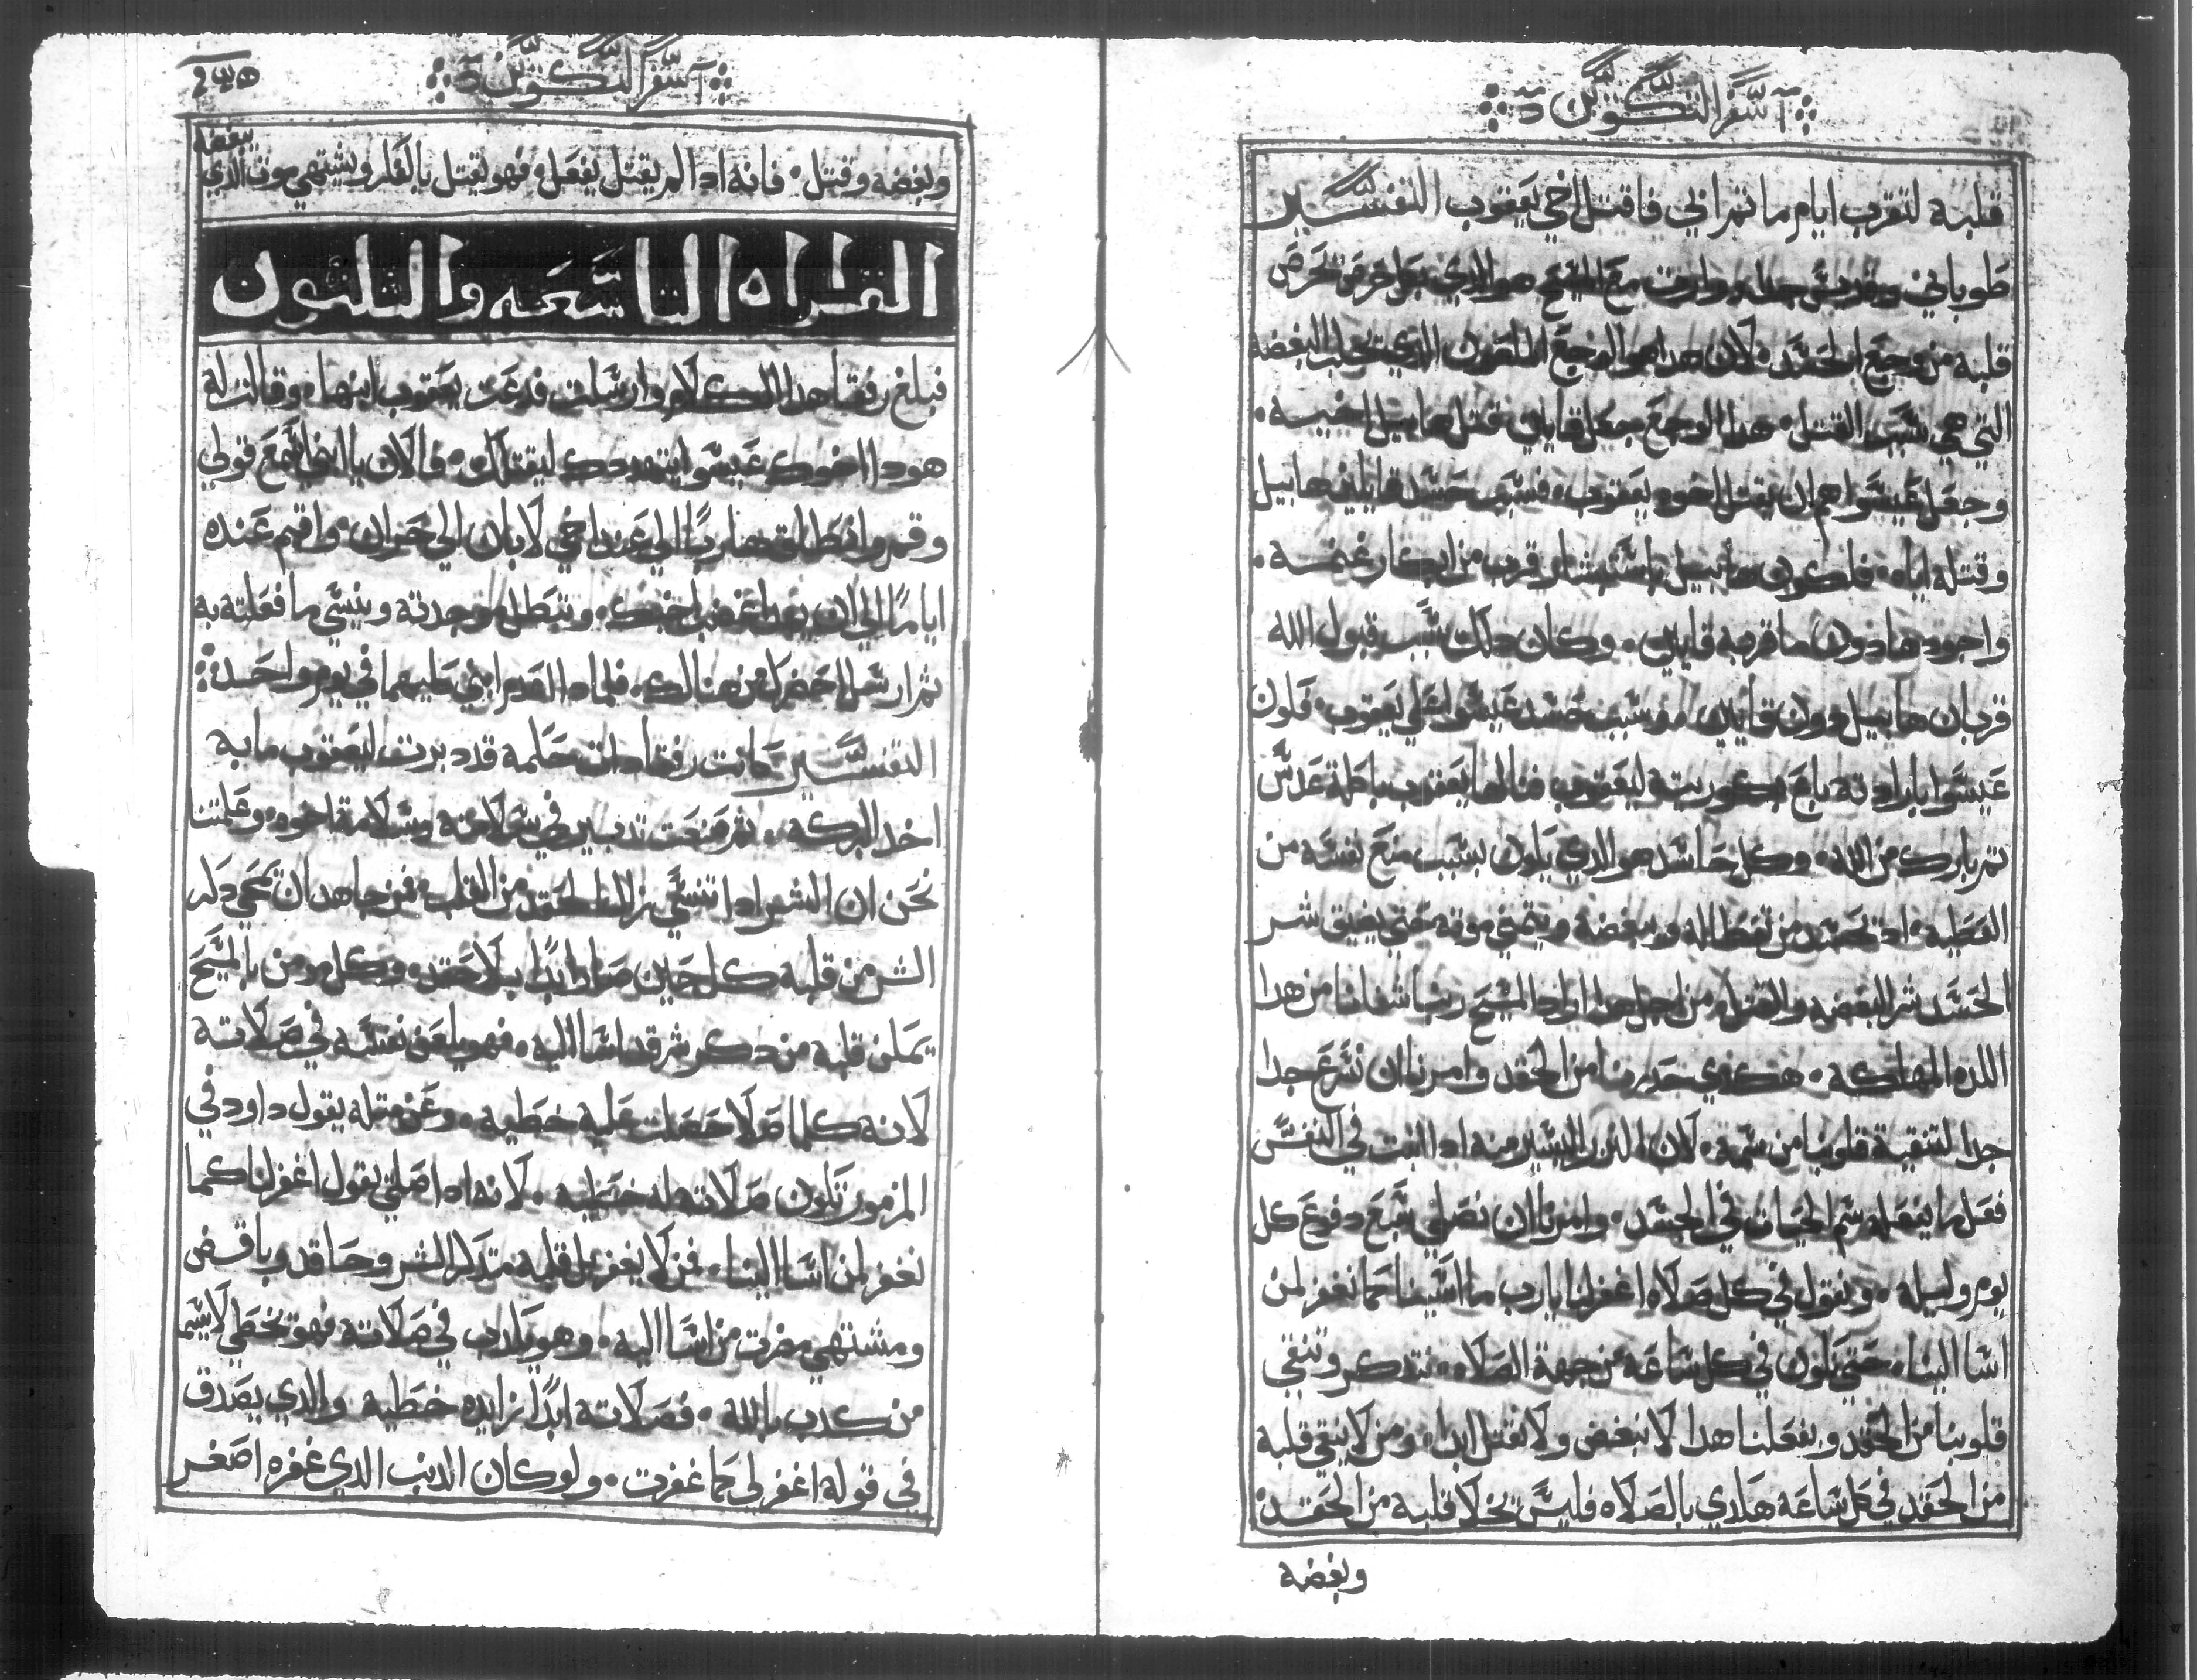 سفر التكوين
قلبه لتقرب ايام ماتم ابي فاقتل اخي يعقوب التفسير
طوباني وقديس جدا ووارت مع المسيح هو الذي بكل حرص يحرص
قلبه من وجع الحقد لان هدا هو الوجع الملعون الذي يجلب البغضه
التي هي سبب القتل هدا الوجع جعل قايين قتل هابيل اخيه
وجعل عيسوا هم ان يقتل اخوه يعقوب فسبب حسد قايين هابيل
وقتله اياه فلكون هابيل باستبشار قرب من ابكار غنمه
واجودها دون ما قربه قايين وكان دلك سبب قبول الله
قربان هابيل دون قايين وسبب حسد عيسوا علي يعقوب فلون
عيسوا بارادته باع بكوريته ليعقوب فنالها يعقوب باكلة عدس
تم بارك من الله وكل حاسد هو الدي يكون بسبب منع نفسه من
العطيه اد يحسد من تعطا له ويبغضه ويتمني موته حتي يفيق شر
الحسد شر البغضه والقتل من اجل هدا اراد المسيح ربنا شفانا من هدا
الداه المهلكه هكدي حدرنا من الحقد وامرنا ان نسرع جدا
جدا لتنقية قلوبنا من سمه لان النزر اليسير منه ادا اتبت في النفس
فعل ما يفعله سم الحيات في الجسد وامرنا ان نصلي سبع دفوع كل
يوم وليله ونقول في كل صلاه اغفر لنا يارب ما اسينا كما نغفر لمن
اسا الينا حتي نكون في كل ساعه من جهة الصلاه نتدكر وننقي
قلوبنا من الحقد وبفعلنا هدا لا نبغض ولا نقتل ابدا ومن لا ينقي قلبه
من الحقد في كل ساعه هكدي بالصلاه فليس يخلا قلبه من الحقد
وبغضه
سفر التكوين
وبغضه وقتل فانه ادا لم يقتل بفعل فهو يقتل بالفكر ويشتهي موت الدي
يبغضه
القراه التاسعه والتلتون
فبلغ رفقا هدا الكلام وارسلت فدعت يعقوب ابنها وقالت له
هودا اخوك عيسوا يتهددك ليقتلك فالان يا ابني اسمع قولي
وقم وانطلق هاربًا الي عند اخي لابان الي حران واقم عنده
ايامًا الي ان يهدا غضب اخيك وتبطل موجدته وينسي ما فعلته به
تم ارسل احضرك من هنالك فلمادا اعدم ابني كليهما في يوم واحد
التفسير كانت رفقا دات حكمه قد دبرت ليعقوب ما به
اخد البركه تم صنعت تدبير في سلامته وسلامة اخوه وعلمتنا
نحن ان الشر ادا تنسي زال الحقد من القلب فمن جاهد ان يمحي دكر
الشر من قلبه كل حين صار ابدًا بلا حقد وكل مومن بالمسيح
يمكن قلبه من دكر شر قد اسا اليه فهو يلعن نفسه في صلاته
لانه كلما صلا حصلت عليه خطيه وعن متله يقول داود في
المزمور تكون صلاته له خطيه لانه ادا صلي يقول اغفر لنا كما
نغفر لمن اسا الينا فمن لا يغفر بل قلبه متدكر الشر وحاقد وباغض
ومشتهي مضرت من اسا اليه وهو يكدب في صلاته فهو يخطي لاسيما
من كدب بالله فصلاته ابدًا زايده خطيه والدي يصدق
في قوله اغفر لي كما غفرت ولو كان الدنب الدي غفره اصغر